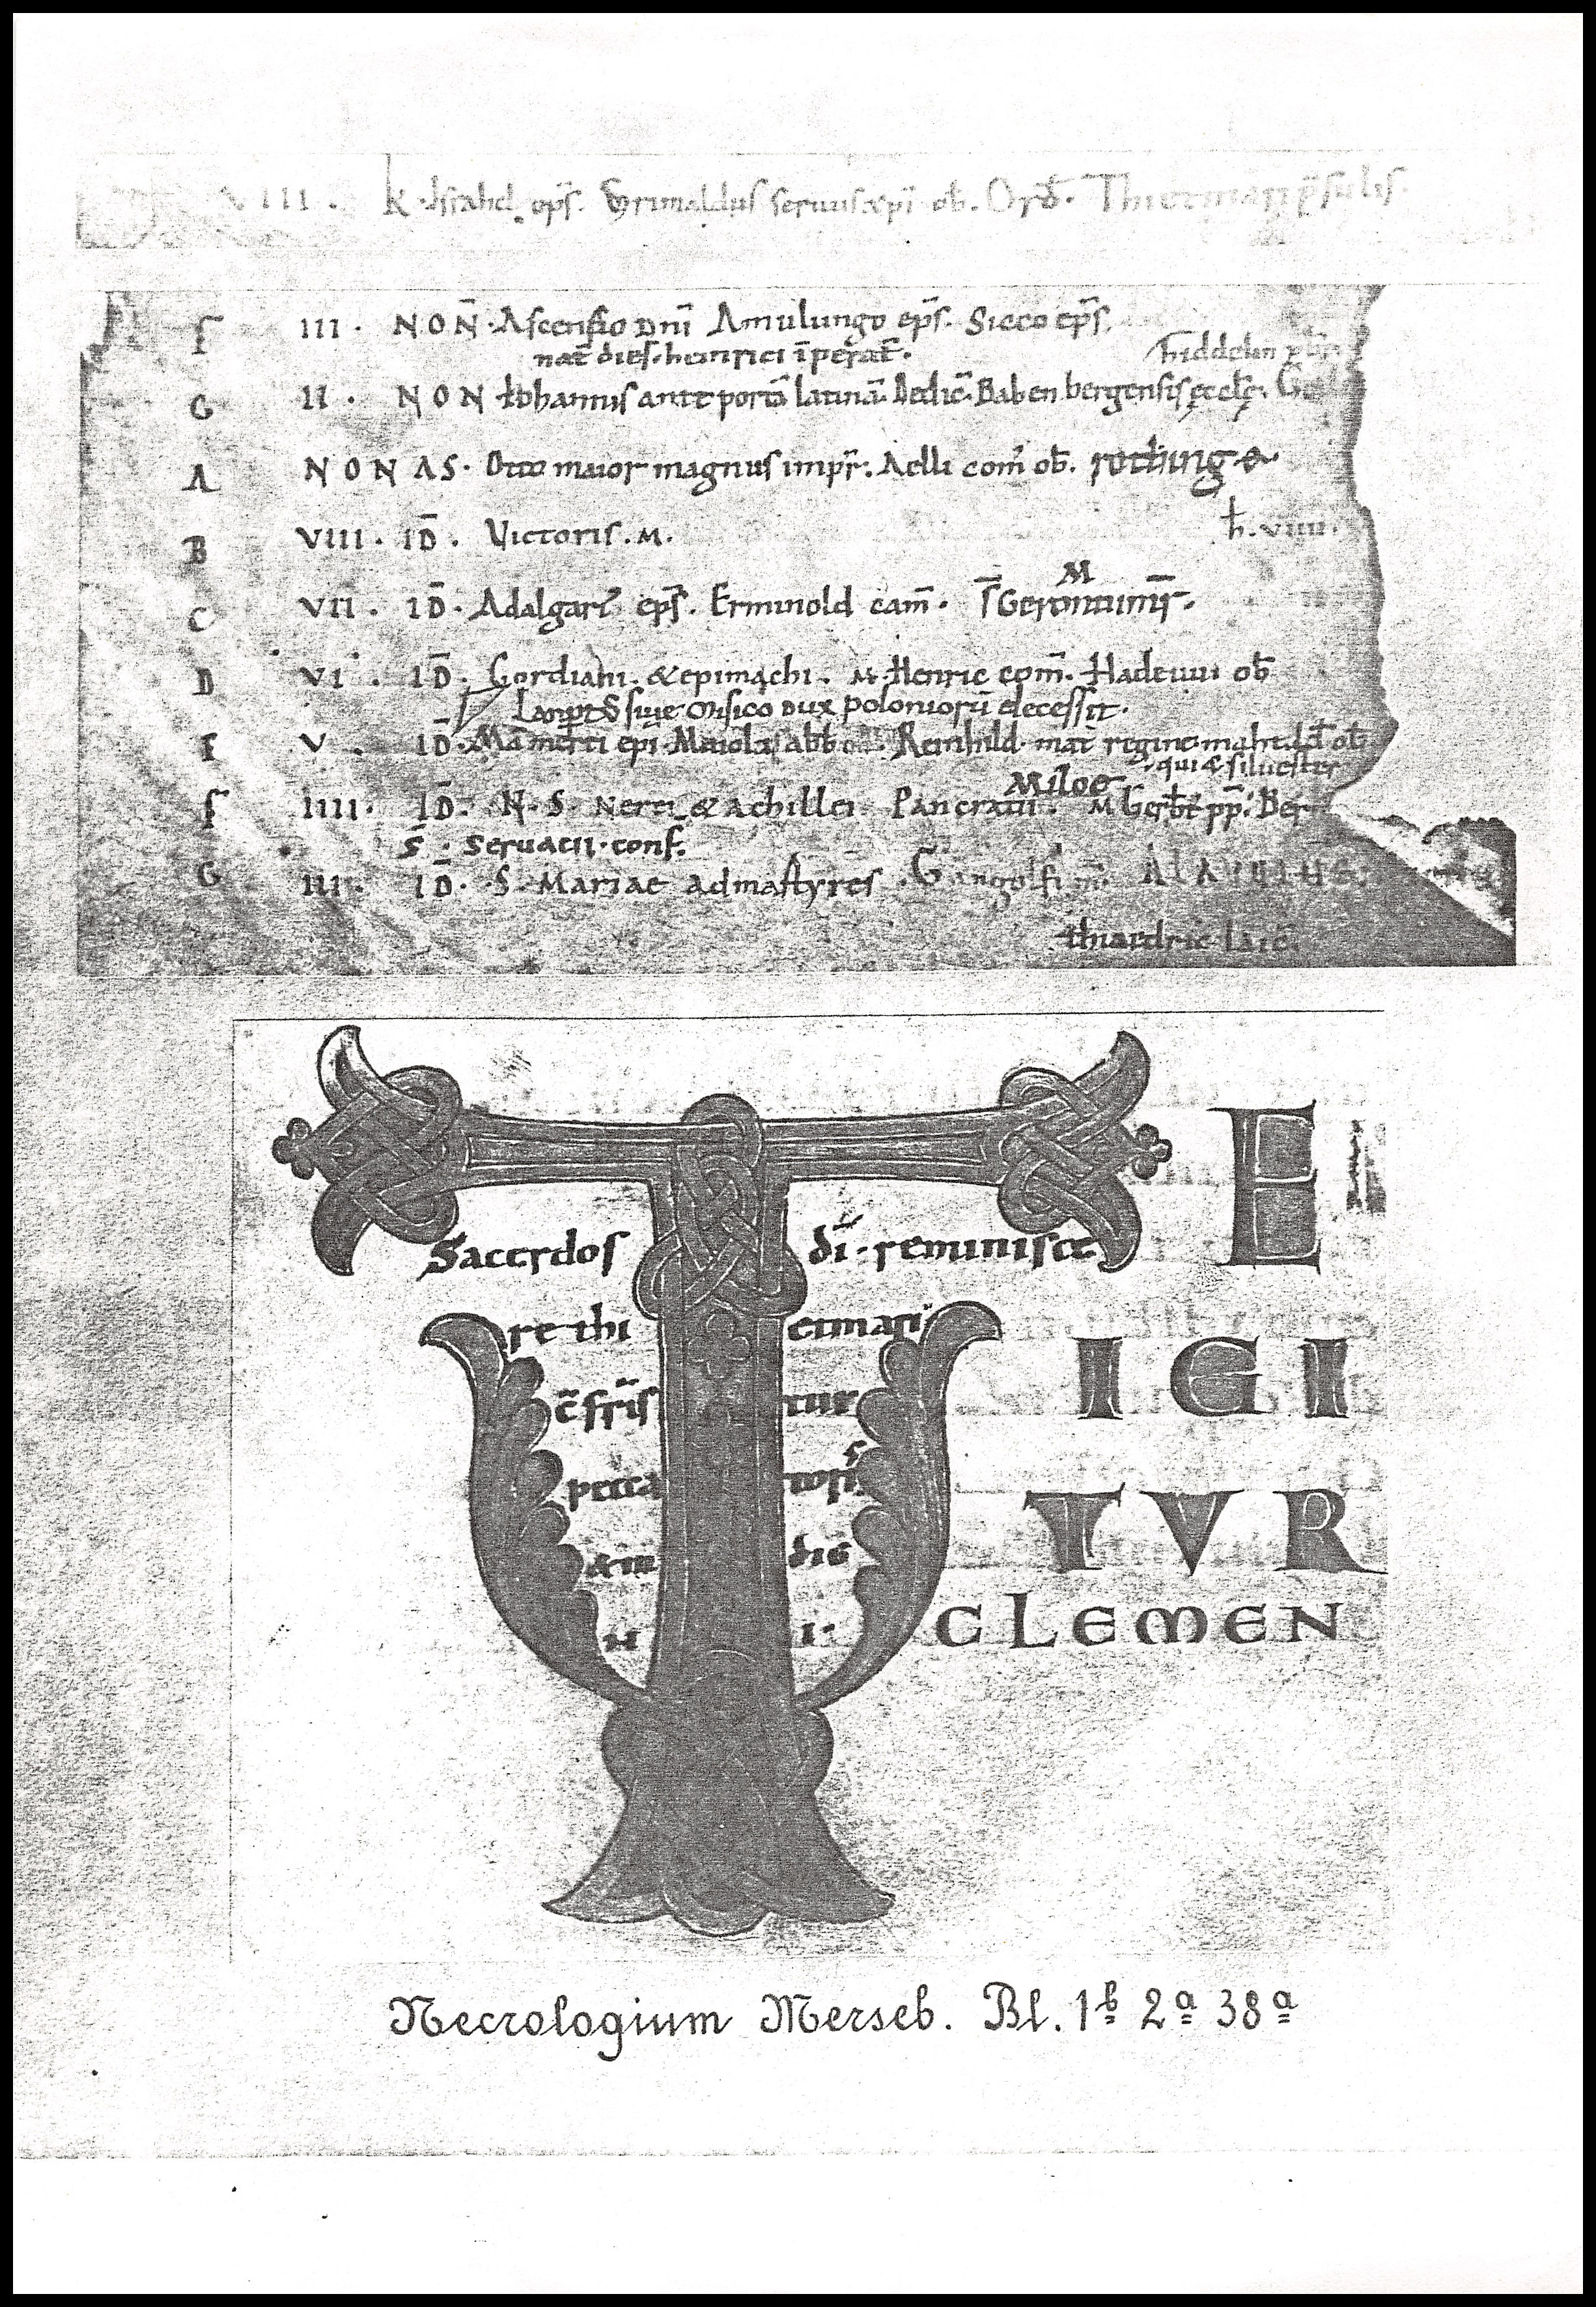 VIII. k. epẜ. Grimaldus seruus xpi ob. Ord. Thietmari p̄sulis.
F III. NON̄. Ascensio Dn̄i Amulungo ep̄s. Sicco ep̄s.
nat̄ dies. heinrici īperat̄. hiddelin pb̄r.
G II. NON Iohannis ante portā latinā. Dedic̄. Babenbergensis ęcclę.
A NONAS. Otto maior magnus impr̄. Aelli com̄ ob̄. rotking
B VIII. ID̄. Victoris. M. h. viiii.
M
C VII. ID̄. Adalgar ep̄s. Erminold cam̄.
D VI. ID̄. Gordiani. & epimachi. M. Henric com̄. Hadeuui ob̄
siue Misico Dux poloniorū decessit.
E V. ID̄. Mamerti epi. Maiolus abb Reinhild. mat̄ regine mahtild̄ ob̄
qui & siluester
Miloe
F IIII. ID̄. N. S. Nerei & achillei Pancratii. M Gerbt pp. Ber
S̄. seruacii. conf.
G III. ID̄. S. Mariae ad martyres. Gangolfi m̄.
thiaedric laic̄.
TE
Sacerdos dī. reminisce
re thietmari
IGI
c̄fr̄is tui
peccatoris
TVR
& indig
CLEMEN
NI.
Necrologium Merseb. Bl. 1b 2a 38a